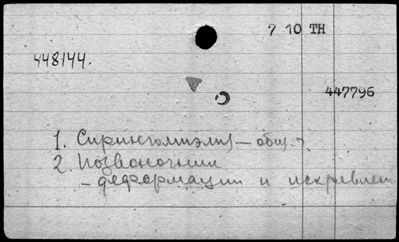 7 10 TH
448144.
447796
1. Сирингомиэлия – общ.
2. Позвоночник
– деформации и искривлен